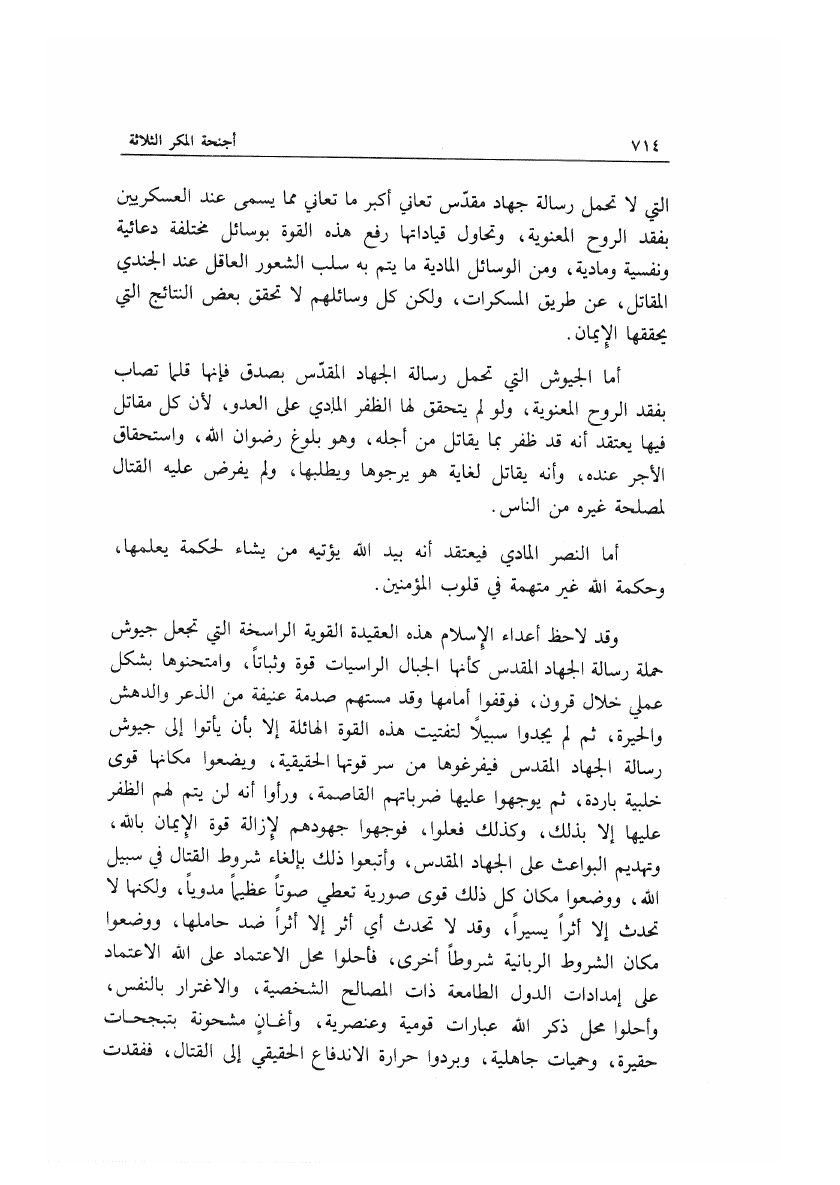 ٧١٤ أجنحة المكر الثلاثة
التي لا تحمل رسالة جهاد مقدّس تعاني أكبر ما تعاني مما يسمى عند العسكريين
بفقد الروح المعنوية، وتحاول قياداتها رفع هذه القوة بوسائل مختلفة دعائية
ونفسية ومادية، ومن الوسائل المادية ما يتم به سلب الشعور العاقل عند الجندي
المقاتل، عن طريق المسكرات، ولكن كل وسائلهم لا تحقق بعض النتائج التي
يحققها الإِيمان.
أما الجيوش التي تحمل رسالة الجهاد المقدّس بصدق فإنها قلما تصاب
بفقد الروح المعنوية، ولو لم يتحقق لها الظفر المادي على العدو، لأن كل مقاتل
فيها يعتقد أنه قد ظفر بما يقاتل من أجله، وهو بلوغ رضوان الله، واستحقاق
الأجر عنده، وأنه يقاتل لغاية هو يرجوها ويطلبها، ولم يفرض عليه القتال
لمصلحة غيره من الناس.
أما النصر المادي فيعتقد أنه بيد الله يؤتيه من يشاء لحكمة يعلمها،
وحكمة الله غير متهمة في قلوب المؤمنين.
وقد لاحظ أعداء الإِسلام هذه العقيدة القوية الراسخة التي تجعل جيوش
حملة رسالة الجهاد المقدس كأنها الجبال الراسيات قوة وثباتاً، وامتحنوها بشكل
عملي خلال قرون، فوقفوا أمامها وقد مستهم صدمة عنيفة من الذعر والدهش
والحيرة، ثم لم يجدوا سبيلاً لتفتيت هذه القوة الهائلة إلا بأن يأتوا إلى جيوش
رسالة الجهاد المقدس فيفرغوها من سر قوتها الحقيقية، ويضعوا مكانها قوى
خلبية باردة، ثم يوجهوا عليها ضرباتهم القاصمة، ورأوا أنه لن يتم لهم الظفر
عليها إلا بذلك، وكذلك فعلوا، فوجهوا جهودهم لإِزالة قوة الإِيمان بالله،
وتهديم البواعث على الجهاد المقدس، وأتبعوا ذلك بإلغاء شروط القتال في سبيل
الله، ووضعوا مكان كل ذلك قوى صورية تعطي صوتاً عظيماً مدوياً، ولكنها لا
تحدث إلا أثراً يسيراً، وقد لا تحدث أي أثر إلا أثراً ضد حاملها، ووضعوا
مكان الشروط الربانية شروطاً أخرى، فأحلوا محل الاعتماد على الله الاعتماد
على إمدادات الدول الطامعة ذات المصالح الشخصية، والاغترار بالنفس،
وأحلوا محل ذكر الله عبارات قومية وعنصرية، وأغـانٍ مشحونة بتبجحـات
حقيرة، وحميات جاهلية، وبردوا حرارة الاندفاع الحقيقي إلى القتال، ففقدت